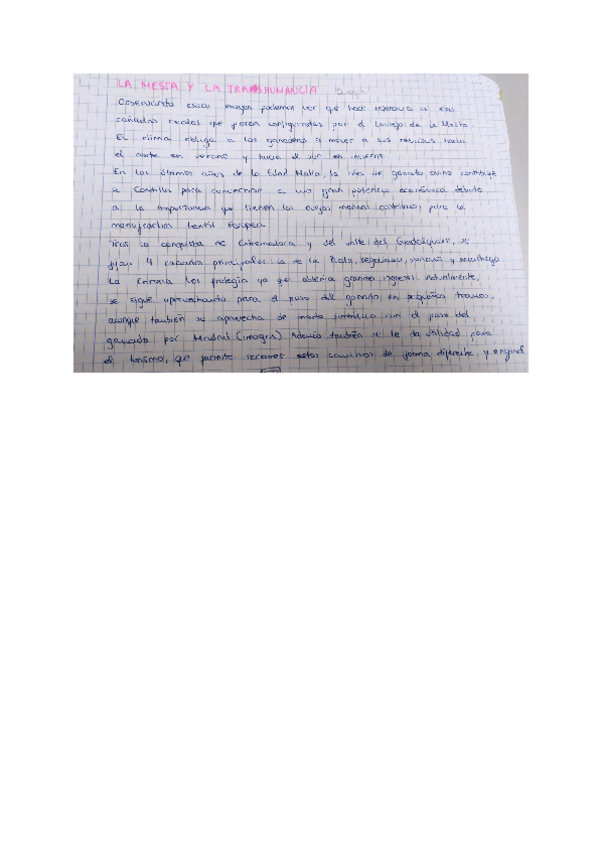 LA MESTA Y LA TRANSHUMANCIA
Observando estas imagen podemos ver que hace referencia a las
cañadas reales que fueron configuradas por el Concejo de la Mesta.
El clima obliga a los ganaderos a mover a sus rebaños hacia
el norte en verano y hacia el sur en invierno.
En los últimos años de la Edad Media, la cría de ganado ovino contribuyó
a Castilla para convertirse a una gran potencia económica debido
a la importancia que tienen las ovejas merinas castellanas para la
manufactura textil europea.
Tras la conquista de Extremadura y del valle del Guadalquivir, se
fijan 4 cañadas principales: la de la Plata, segoviana, soriana y manchega
La Corona las protegía ya que obtenía grandes ingresos. Actualmente,
se sigue aprovechando para el paso del ganado en pequeños tramos,
aunque también se aprovecha de modo simbólico con el paso del
ganado por Madrid (imagen) Además también se le da utilidad para
el turismo, que permite recorrer estos caminos de forma diferente y original